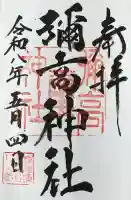 奉拝
彌高神社
令和八年五月四日